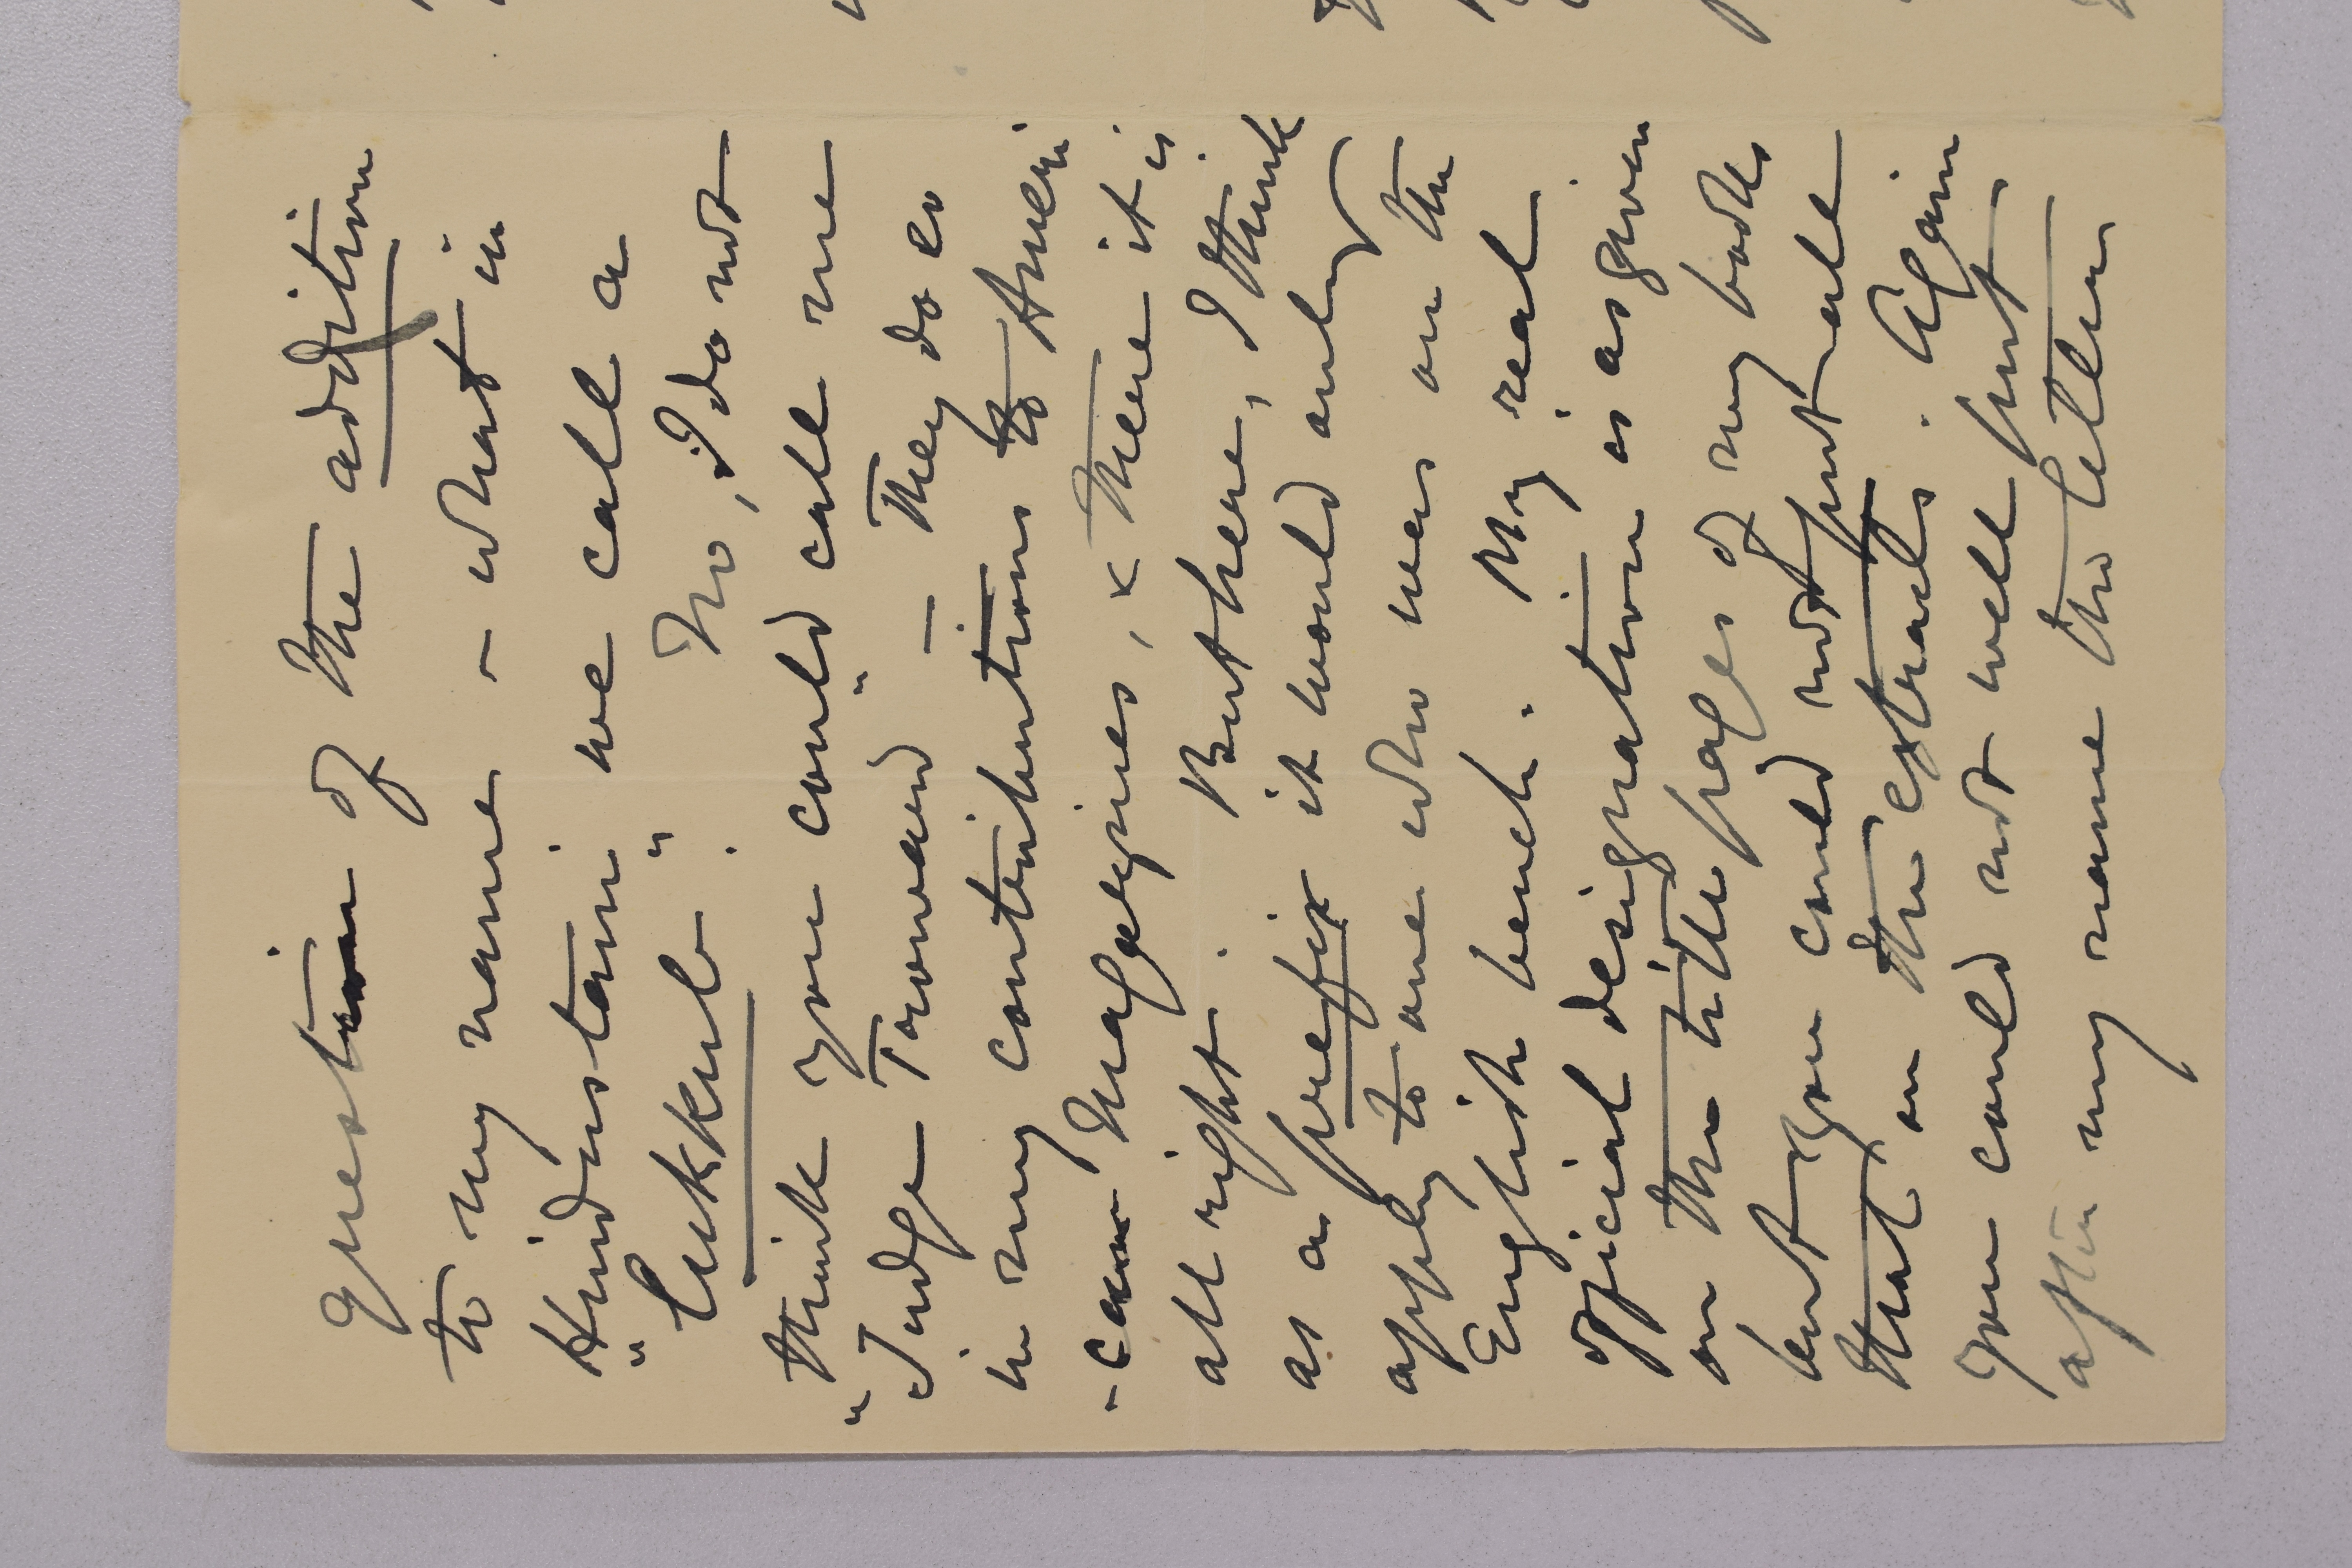 question of the addition
to my name - what in
Hindustani we call a
"Lukkub". No, I do not
think you could call me
"Judge Torward" - They do so
in my contributions to Ameri
-can Magazines, & there it is
all right. But here, I think
as a prefix it would only
apply to one who was on the
English bench. My real
official designation is as given
on the title pages of my books
but you could not put all
that on the extracts. Again
you could not well put
after my name the letters